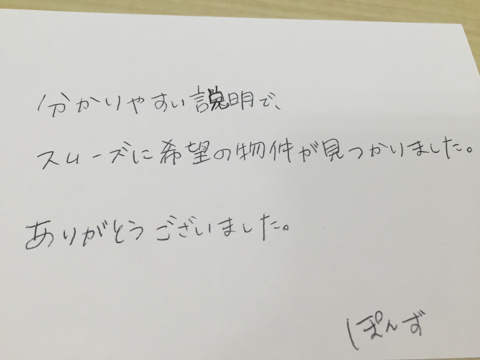 分かりやすい説明で、
スムーズに希望の物件が見つかりました。
ありがとうございました。
ぽんず